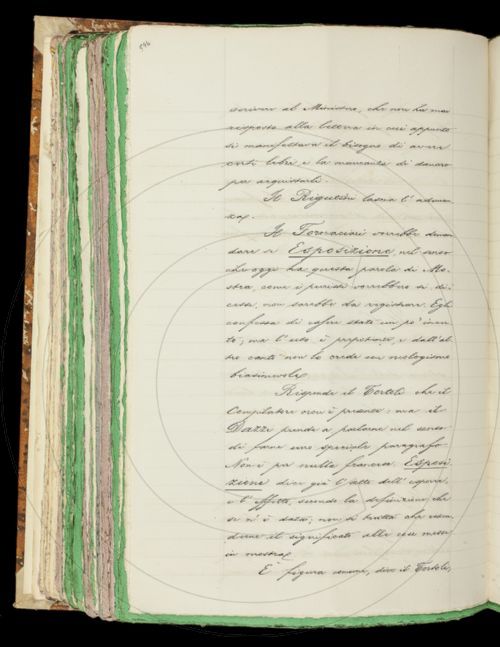 546
scrivere al Ministero, che non ha mai
risposto alla lettera in cui appunto
si manifestava il bisogno di avere
certi libri, e la mancanza di danaro
per acquistarli.
Il Rigutini lascia l'adunan-
za.
Il Fornaciari vorrebbe doman-
dare se Esposizione, nel senso
che oggi ha questa parola di Mo-
stra, come i puristi vorrebbero si di-
cesse, non sarebbe da registrare. Egli
confessa di essere stato un po' incer-
to; ma l'uso è prepotente, e dall'al-
tro canto non lo crede un neologismo
biasimevole.
Risponde il Tortoli che il
Compilatore non è presente: ma il
Dazzi prende a parlarne nel senso
di farne uno speciale paragrafo.
Non è per nulla francese. Esposi-
zione dice già l'atto dell'esporre,
e l'effetto, secondo la definizione che
se n'è data; non si tratta che
il significato alle cose messe
in mostra.
È figura comune, dice il Tortoli,